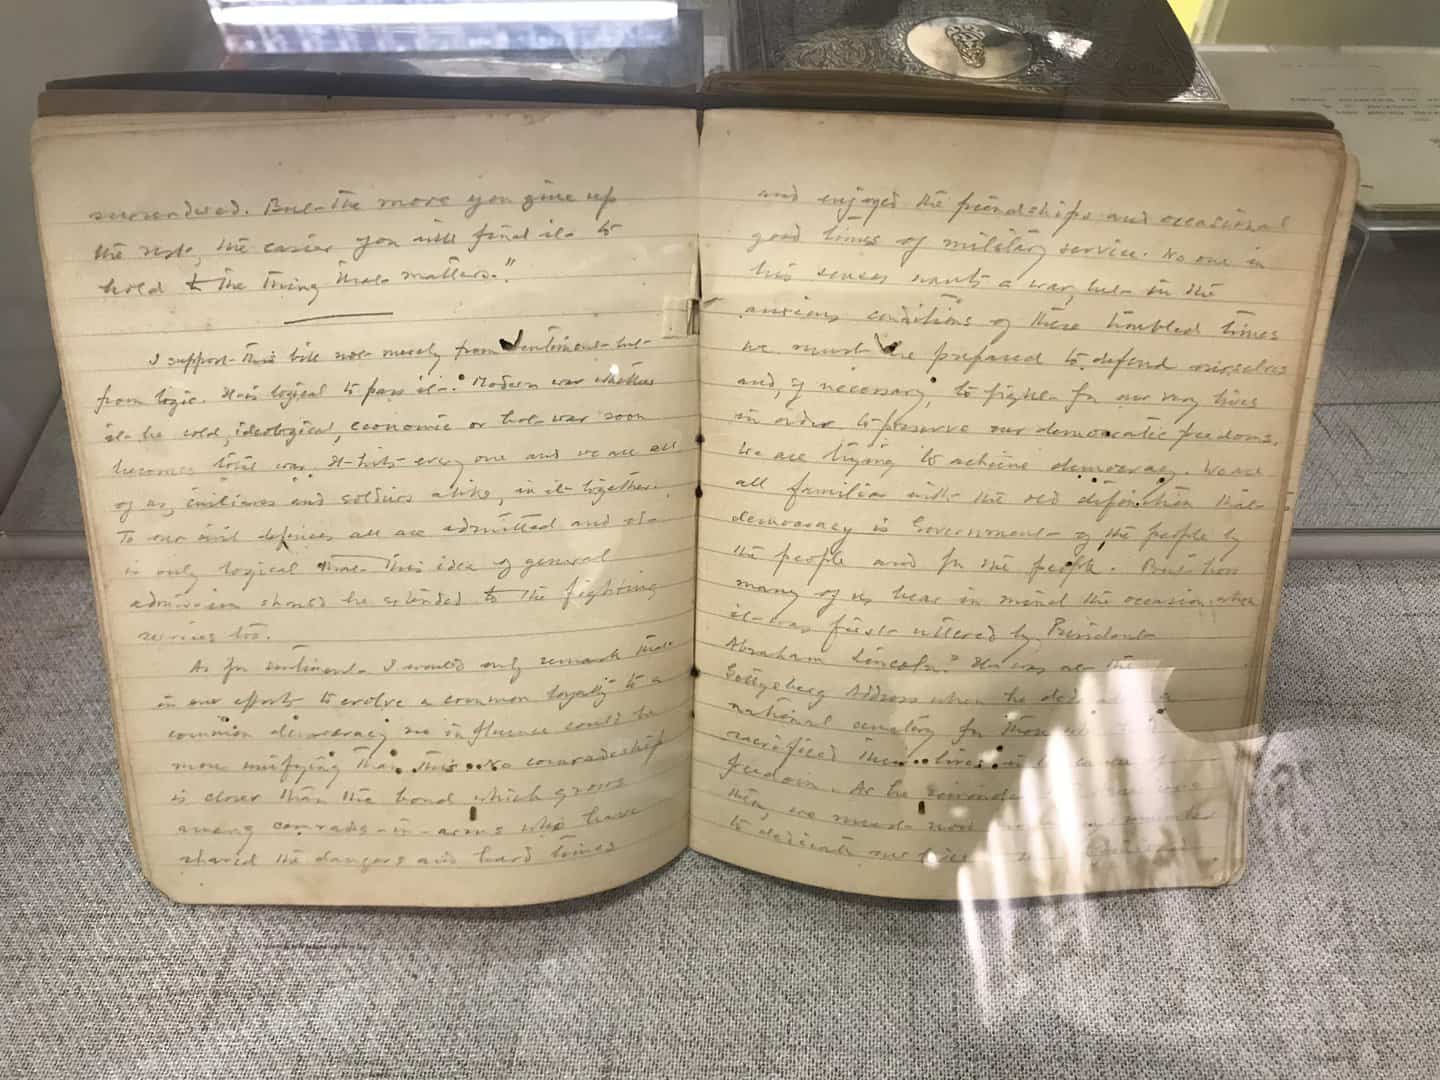 surrendered. But the more you give up
the rest, the easier you will find it to
hold to the thing that matters."
I support this bill not merely from sentiment but
from logic. It is logical to pass it. Modern war whether
it be cold, ideological, economic or hot war soon
becomes total war. It hits every one and we are all
of us, civilians and soldiers alike, in it together.
To our civil defences all are admitted and it
is only logical that this idea of general
admission should be extended to the fighting
services too.
As for sentiment I would only remark that
in our efforts to evolve a common loyalty to a
common democracy no influence could be
more unifying than this. No comradeship
is closer than the bond which grows
among comrades-in-arms who have
shared the dangers and hard times
and enjoyed the friendships and occasional
good times of military service. No one in
his senses wants a war, but in the
anxious conditions of these troubled times
we must be prepared to defend ourselves
and, if necessary, to fight for our very lives
in order to preserve our democratic freedoms.
We are trying to achieve democracy. We are
all familiar with the old definition that
democracy is Government of the people by
the people and for the people. But how
many of us bear in mind the occasion when
it was first uttered by President
Abraham Lincoln? It was at the
Gettysberg Address when he dedicated a
national cemetery for those who
sacrificed their lives in the cause of
freedom. As he
then, we must now
to dedicate our lives